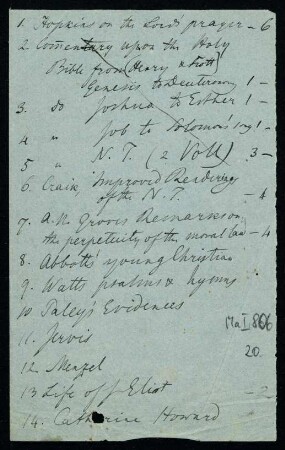 1. Hopkins on the Lord's prayer - 6
2. Comentary upon the Holy
Bible from (Henry & Scott)
Genesis to Deuteronomy 1 -
3. Do Joshua to Esther 1 -
4 " Job to Solomon's song 1 -
5 " N. T. (2 Voll) 3 -
6. Craik, Improved Renderings
of the N. T. - 4
7. A. N. Groves Remarks on
the perpetuity of the moral law - 4
8. Abbott's young Christian
9. Watts psalms & hymns
10 Paley's Evidences
11. Jervis
12. Menzel
13. Life of J Eliot - 2
14. Catherine Howard
Ma I 866
20.